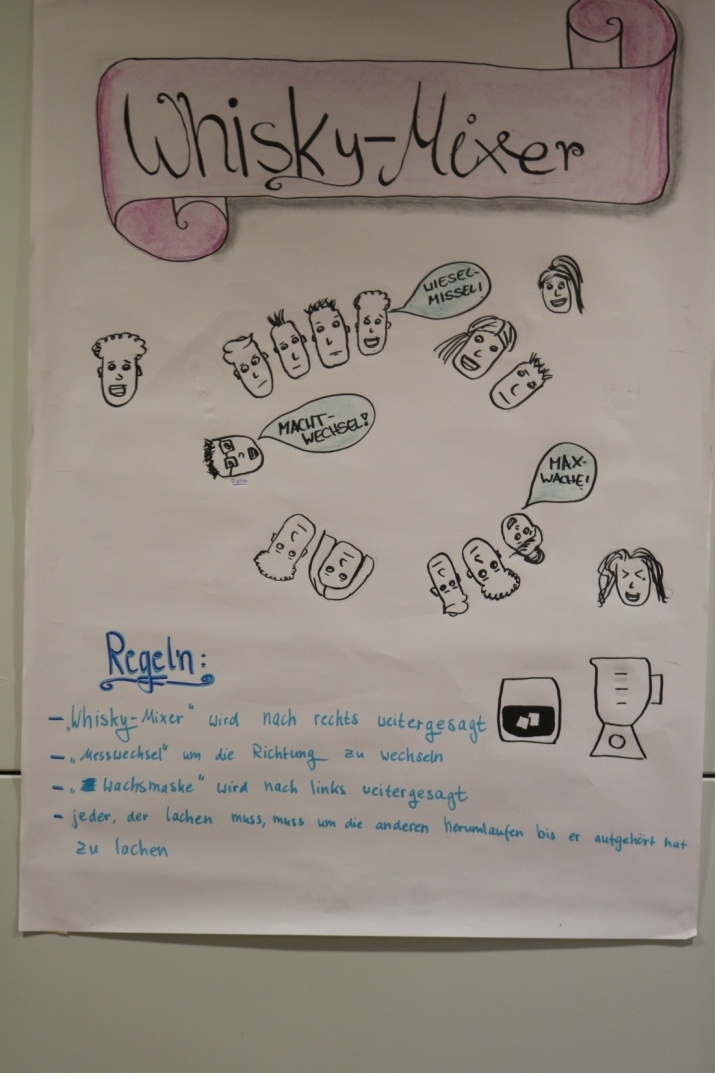 Whisky-Mixer
WIESEL-
MISSEL!
MACHT-
WECHSEL!
MAX-
WACHE!
Regeln:
- „Whisky-Mixer" wird nach rechts weitergesagt
- „Messwechsel" um die Richtung zu wechseln
- „Wachsmaske" wird nach links weitergesagt
- jeder, der lachen muss, muss um die anderen herumlaufen bis er aufgehört hat
zu lachen